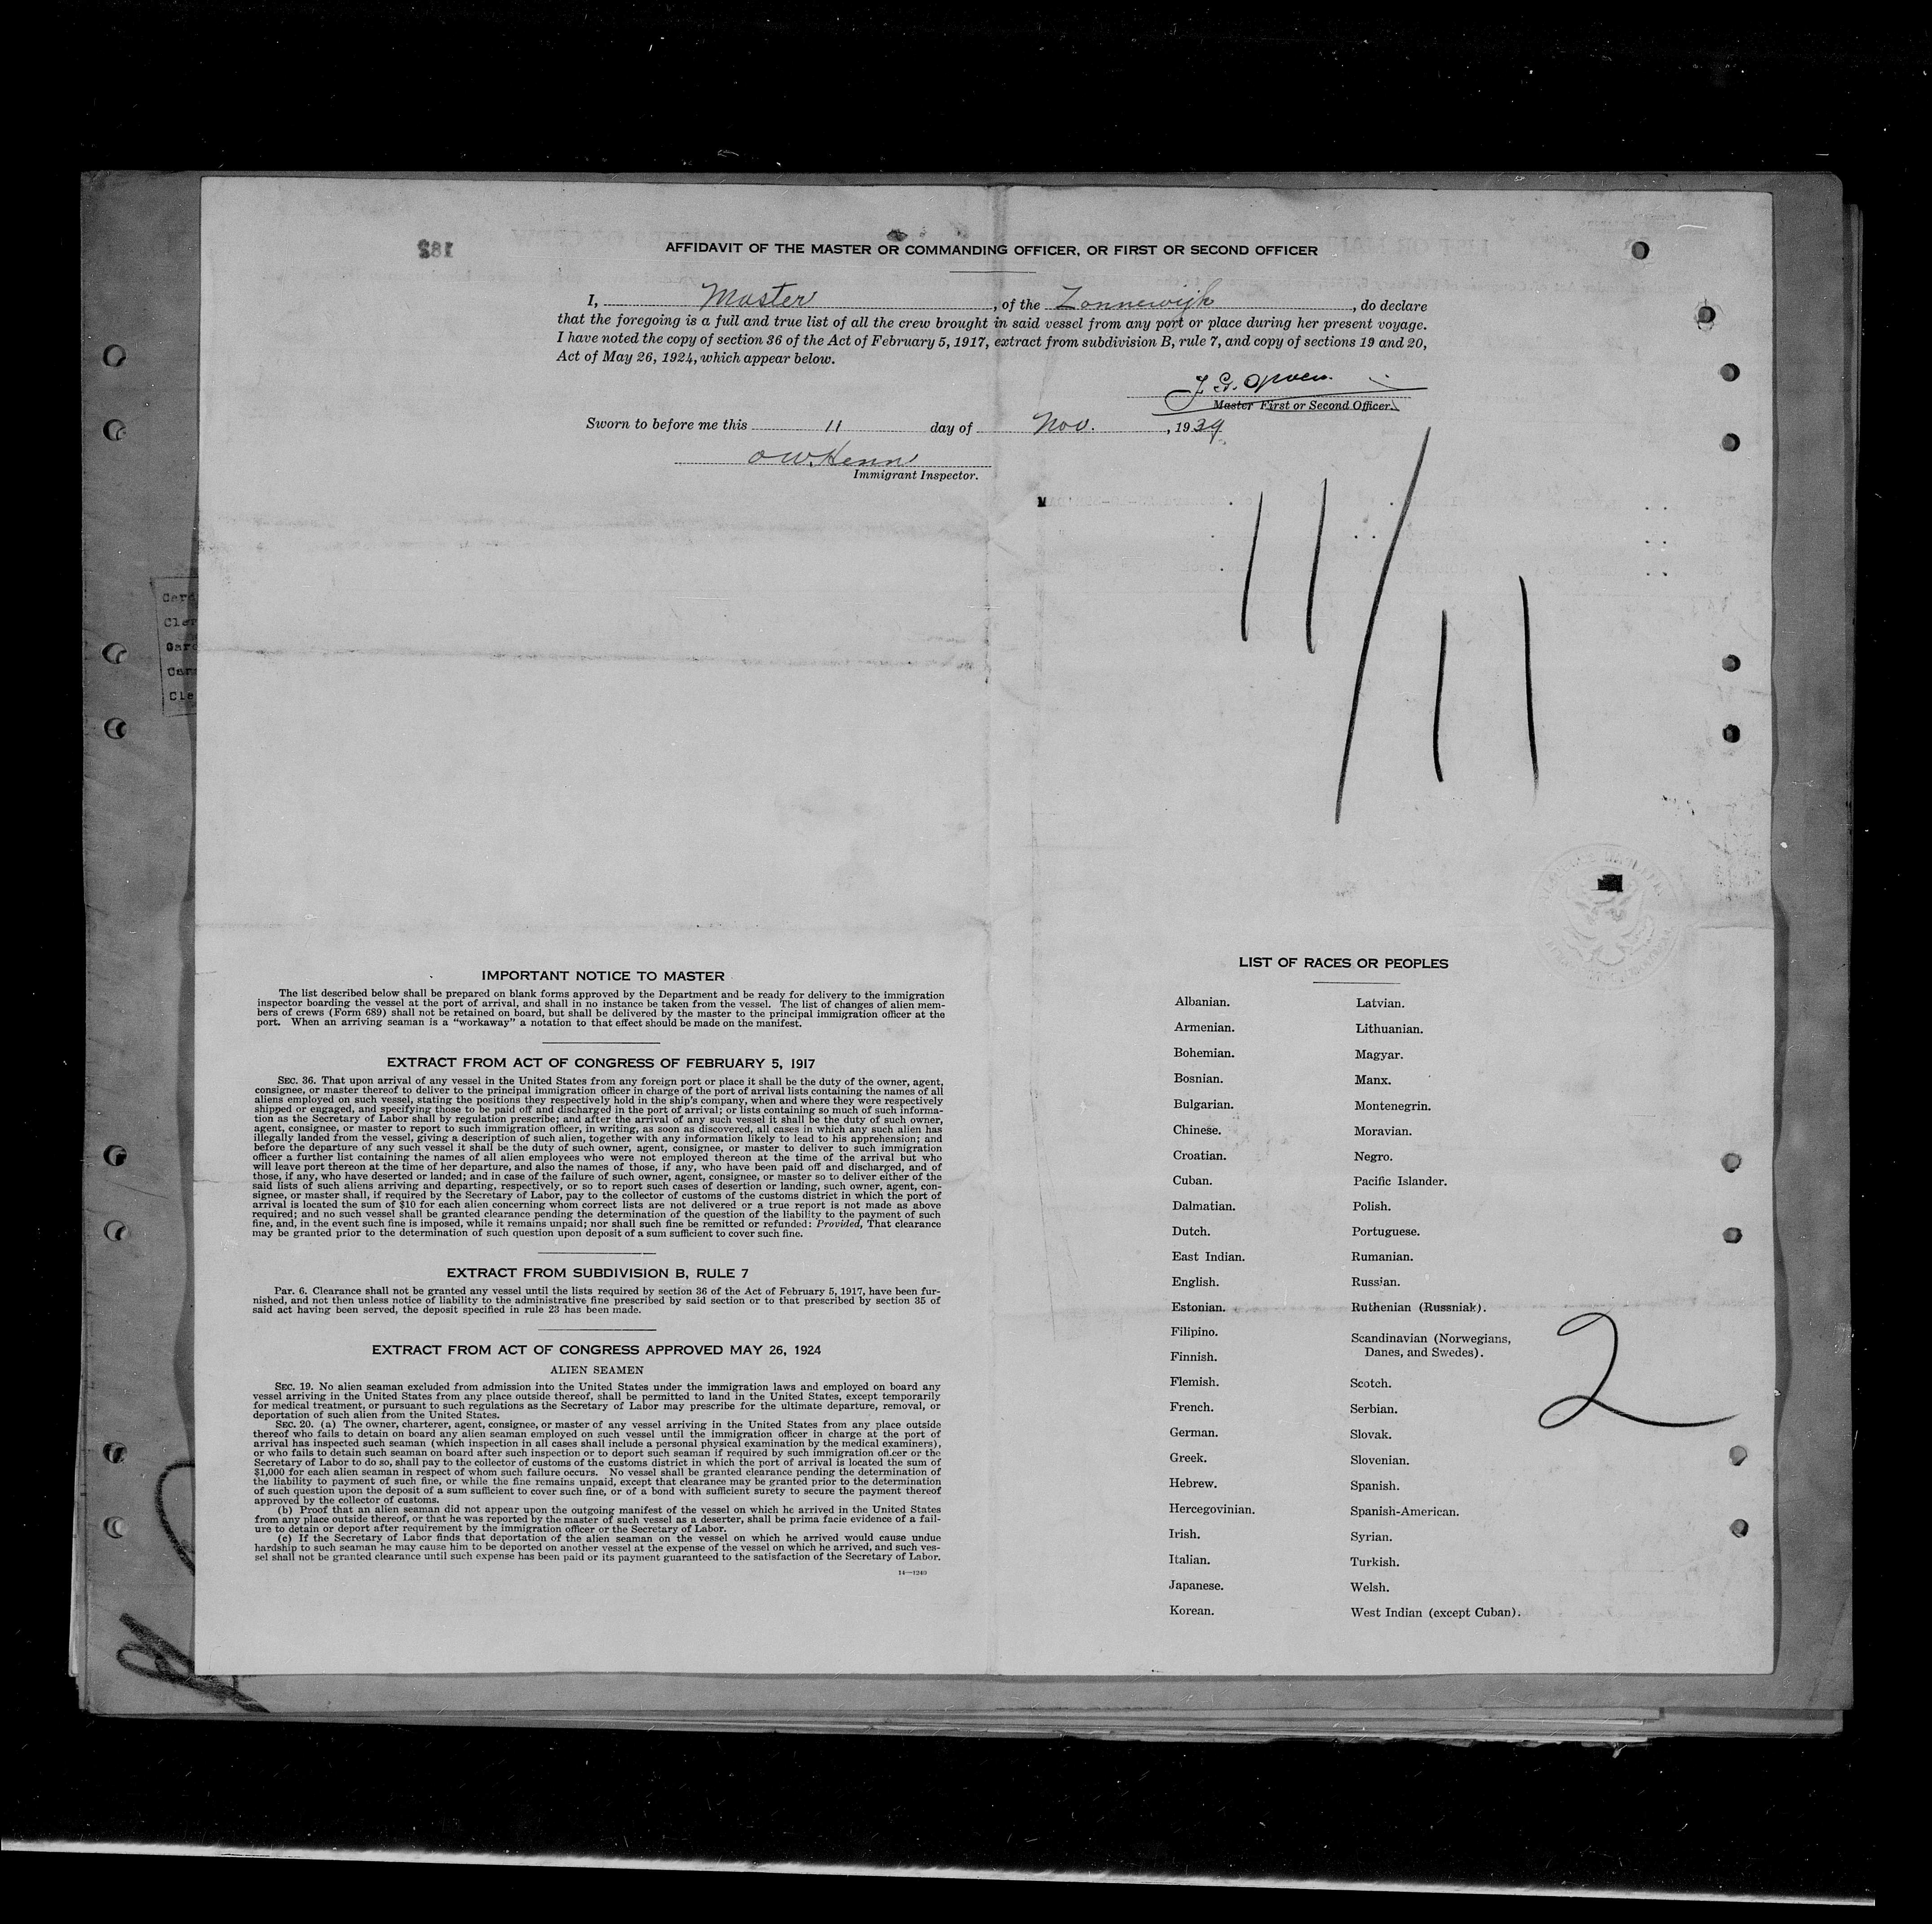 182
AFFIDAVIT OF THE MASTER OR COMMANDING OFFICER, OR FIRST OR SECOND OFFICER
I, Master, of the Zonnewijk, do declare
that the foregoing is a full and true list of all the crew brought in said vessel from any port or place during her present voyage.
I have noted the copy of section 36 of the Act of February 5, 1917, extract from subdivision B, rule 7, and copy of sections 19 and 20,
Act of May 26, 1924, which appear below.
Master First or Second Officer.
Sworn to before me this 11 day of Nov., 1939
O W. Henn
Immigrant Inspector.
11/11
Card
Cler
Card
Card
Cle
IMPORTANT NOTICE TO MASTER
The list described below shall be prepared on blank forms approved by the Department and be ready for delivery to the immigration
inspector boarding the vessel at the port of arrival, and shall in no instance be taken from the vessel. The list of changes of alien mem-
bers of crews (Form 689) shall not be retained on board, but shall be delivered by the master to the principal immigration officer at the
port. When an arriving seaman is a "workaway" a notation to that effect should be made on the manifest.
EXTRACT FROM ACT OF CONGRESS OF FEBRUARY 5, 1917
SEC. 36. That upon arrival of any vessel in the United States from any foreign port or place it shall be the duty of the owner, agent,
consignee, or master thereof to deliver to the principal immigration officer in charge of the port of arrival lists containing the names of all
aliens employed on such vessel, stating the positions they respectively hold in the ship's company, when and where they were respectively
shipped or engaged, and specifying those to be paid off and discharged in the port of arrival; or lists containing so much of such informa-
tion as the Secretary of Labor shall by regulation prescribe; and after the arrival of any such vessel it shall be the duty of such owner,
agent, consignee, or master to report to such immigration officer, in writing, as soon as discovered, all cases in which any such alien has
illegally landed from the vessel, giving a description of such alien, together with any information likely to lead to his apprehension; and
before the departure of any such vessel it shall be the duty of such owner, agent, consignee, or master to deliver to such immigration
officer a further list containing the names of all alien employees who were not employed thereon at the time of the arrival but who
will leave port thereon at the time of her departure, and also the names of those, if any, who have been paid off and discharged, and of
those, if any, who have deserted or landed; and in case of the failure of such owner, agent, consignee, or master so to deliver either of the
said lists of such aliens arriving and departing, respectively, or so to report such cases of desertion or landing, such owner, agent, con-
signee, or master shall, if required by the Secretary of Labor, pay to the collector of customs of the customs district in which the port of
arrival is located the sum of $10 for each alien concerning whom correct lists are not delivered or a true report is not made as above
required; and no such vessel shall be granted clearance pending the determination of the question of the liability to the payment of such
fine, and, in the event such fine is imposed, while it remains unpaid; nor shall such fine be remitted or refunded: Provided, That clearance
may be granted prior to the determination of such question upon deposit of a sum sufficient to cover such fine.
EXTRACT FROM SUBDIVISION B, RULE 7
Par. 6. Clearance shall not be granted any vessel until the lists required by section 36 of the Act of February 5, 1917, have been fur-
nished, and not then unless notice of liability to the administrative fine prescribed by said section or to that prescribed by section 35 of
said act having been served, the deposit specified in rule 23 has been made.
EXTRACT FROM ACT OF CONGRESS APPROVED MAY 26, 1924
ALIEN SEAMEN
SEC. 19. No alien seaman excluded from admission into the United States under the immigration laws and employed on board any
vessel arriving in the United States from any place outside thereof, shall be permitted to land in the United States, except temporarily
for medical treatment, or pursuant to such regulations as the Secretary of Labor may prescribe for the ultimate departure, removal, or
deportation of such alien from the United States.
SEC. 20. (a) The owner, charterer, agent, consignee, or master of any vessel arriving in the United States from any place outside
thereof who fails to detain on board any alien seaman employed on such vessel until the immigration officer in charge at the port of
arrival has inspected such seaman (which inspection in all cases shall include a personal physical examination by the medical examiners),
or who fails to detain such seaman on board after such inspection or to deport such seaman if required by such immigration officer or the
Secretary of Labor to do so, shall pay to the collector of customs of the customs district in which the port of arrival is located the sum of
$1,000 for each alien seaman in respect of whom such failure occurs. No vessel shall be granted clearance pending the determination of
the liability to payment of such fine, or while the fine remains unpaid, except that clearance may be granted prior to the determination
of such question upon the deposit of a sum sufficient to cover such fine, or of a bond with sufficient surety to secure the payment thereof
approved by the collector of customs.
(b) Proof that an alien seaman did not appear upon the outgoing manifest of the vessel on which he arrived in the United States
from any place outside thereof, or that he was reported by the master of such vessel as a deserter, shall be prima facie evidence of a fail-
ure to detain or deport after requirement by the immigration officer or the Secretary of Labor.
(c) If the Secretary of Labor finds that deportation of the alien seaman on the vessel on which he arrived would cause undue
hardship to such seaman he may cause him to be deported on another vessel at the expense of the vessel on which he arrived, and such ves-
sel shall not be granted clearance until such expense has been paid or its payment guaranteed to the satisfaction of the Secretary of Labor.
14—1240
LIST OF RACES OR PEOPLES
Albanian.
Armenian.
Bohemian.
Bosnian.
Bulgarian.
Chinese.
Croatian.
Cuban.
Dalmatian.
Dutch.
East Indian.
English.
Estonian.
Filipino.
Finnish.
Flemish.
French.
German.
Greek.
Hebrew.
Hercegovinian.
Irish.
Italian.
Japanese.
Korean.
Latvian.
Lithuanian.
Magyar.
Manx.
Montenegrin.
Moravian.
Negro.
Pacific Islander.
Polish.
Portuguese.
Rumanian.
Russian.
Ruthenian (Russniak).
Scandinavian (Norwegians,
Danes, and Swedes).
Scotch.
Serbian.
Slovak.
Slovenian.
Spanish.
Spanish-American.
Syrian.
Turkish.
Welsh.
West Indian (except Cuban).
2